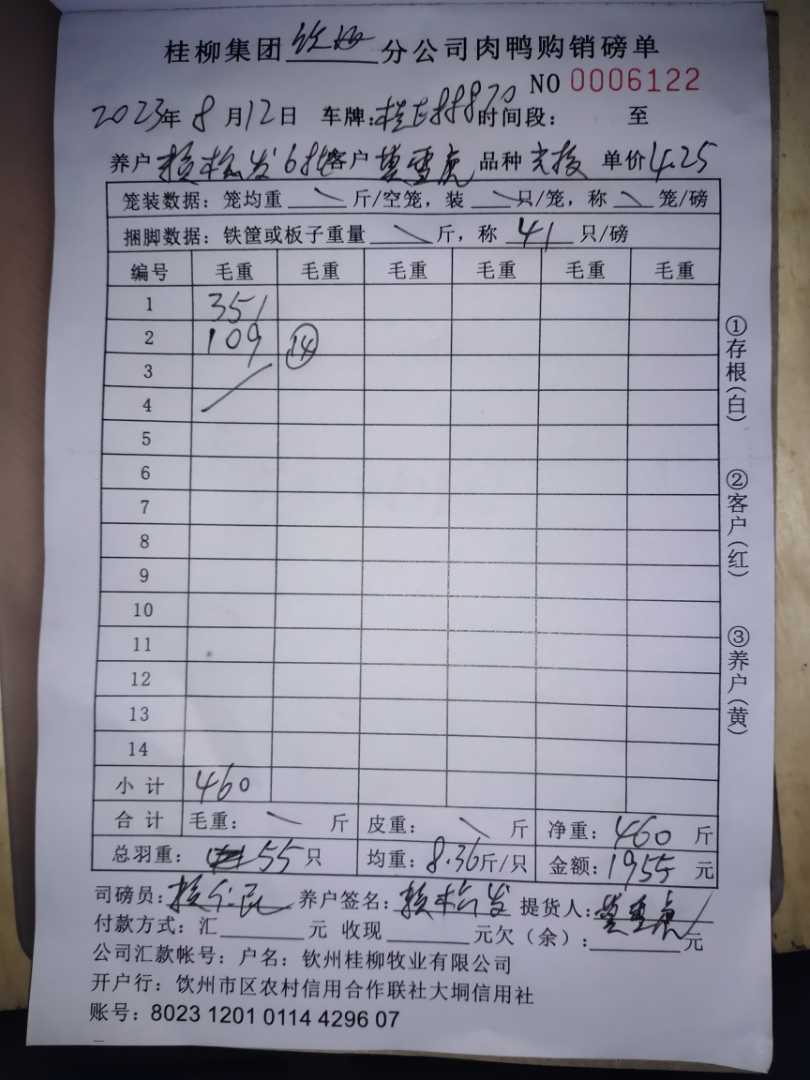 桂柳集团钦州分公司肉鸭购销磅单
NO 0006122
2023年8月12日 车牌:桂E88870时间段: 至
养户 松发6批客户 雪虎 品种 单价4.25
笼装数据: 笼均重 \ 斤/空笼, 装 \ 只/笼, 称 \ 笼/磅
捆脚数据: 铁筐或板子重量 \ 斤, 称 41 只/磅
编号 毛重 毛重 毛重 毛重 毛重 毛重
1 351
2 109 ⑭
3
4
5
6
7
8
9
10
11
12
13
14
小计 460
合计 毛重: \ 斤 皮重: \ 斤 净重: 460 斤
总羽重: 55只 均重: 8.36斤/只 金额: 1955 元
司磅员: 养户签名: 松发 提货人: 雪虎
付款方式: 汇 元 收现 元欠(余): 元
公司汇款帐号: 户名: 钦州桂柳牧业有限公司
开户行: 饮州市区农村信用合作联社大垌信用社
账号: 8023 1201 0114 4296 07
①存根(白)
②客户(红)
③养户(黄)